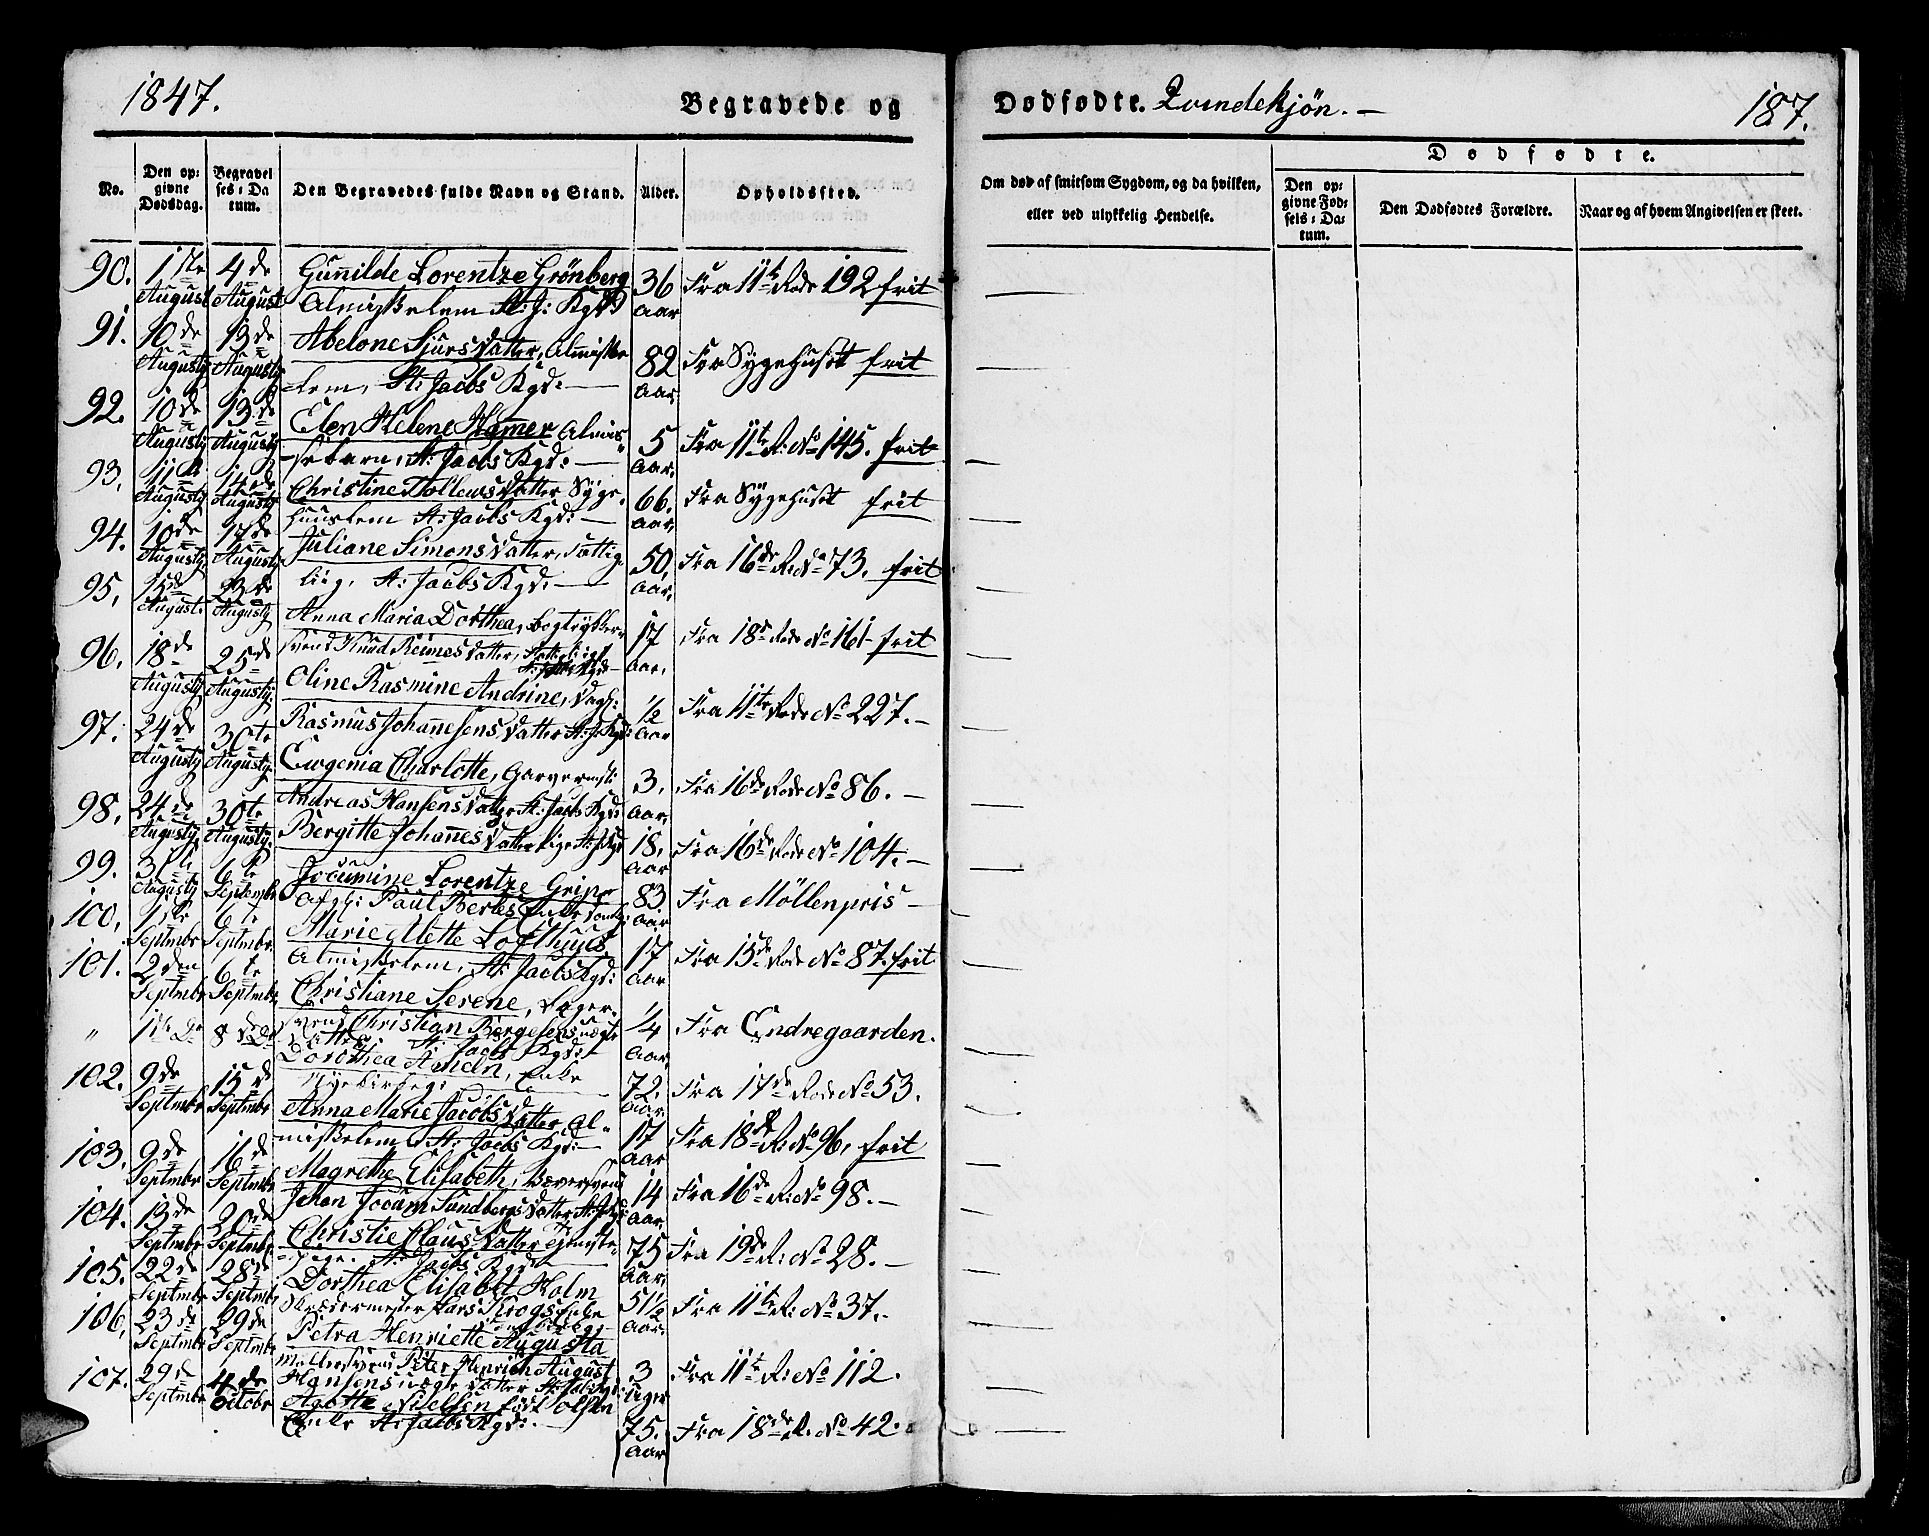 1847.
Begravede og
Dødfødte. Qvindekjön. —
187.
No.
Den op-
givne
Dødsdag.
Begravel
ses-Da
tum.
Den Begravedes fulde Navn og Stand.
Alder.
Opholdssted.
Om død af smitsom Sygdom, og da hvilken,
eller ved ulykkelig Hendelse.
Dødfødte.
Den op-
givne Fød-
sels-Da-
tum.
Den Dødfødtes Forældre.
Naar og af hvem Angivelsen er skeet.
90. 1ste August 4de August Gunilde Lorentze Grönberg
Almisselem St: J: Kgd 36 Aar Fra 11te Rode 192 frit
91. 10de August 13de August Abelone Sjursdatter, Almisse
-lem, St: Jacobs Kgd: — 82 Aar Fra Sygehuset frit
92. 10de August 13de August Elen Helene Hamer Almis-
sebarn, St: Jacobs Kgd: — 5 Aar. Fra 11te R: No 145. frit
93. August 14de August Christine Tollewsdatter Syge-
huuslem St: Jacobs Kgd: — 66. Aar, Fra Sygehuset frit
94. 10de August 17de August Juliane Simonsdatter, Fattig-
lig, St: Jacobs Kgd: — 50, Aar, Fra 16de R: No 73. frit
95, 15de August 23de August Anna Maria Dorthea, Bogtrykker-
svend Knud Reimers datter, 17 Aar, Fra 18de Rode No 161 frit
96. 18de August 25de August Oline Rasmine Andrine, Dags:
Rasmus Johannesens datter St: J: Kgd: 1/2 Aar Fra 11te Rode No 227. —
97. 24de August 30te August Eugenia Charlotte, Garvermst:
Andreas Hansens datter St: Jacobs Kgd: 3. Aar, Fra 16de Rode No 86. —
98. 24de August 30te August Bergitte Johannesdatter Pige St: J: Kgd 18, Aar Fra 16de Rode No 104. —
99. 31te August 6te Septembr Jocumine Lorentze Grip
Afg: Paul Bertes Enke 83 Aar Fra Möllenpris —
100, 1ste Septmbr 6te Septmbr. Marie Mette Lofthuus
Almisselem, St: Jacobs Kgd: 17 Aar Fra 15de Rode No 87. frit
101. 2den Septmbr 6te Septmbr. Christiane Serene, Bager-
svend Christian Bergesens uægte
datter, St: Jacobs Kgd: 1/4 Aar Fra Endregaarden.
" 1ste Do 8de Do Dorothea Ameln, Enke
Nyekirkeg: 72. Aar. Fra 17de Rode No 53.
102. 9de Septmbr 15de Septmbr Anna Marie Jacobsdatter, Al-
misselem, St: Jacobs Kgd: 17 Aar Fra 18de R: No 96, frit
103. 9de Septmbr 16de Septmbr Magrethe Elisabeth, Bæversvend
Johan Jocum Sundbergs datter St: J: Kgd: 14 Aar. Fra 16de R: No 98. —
104. 13de Septmbr 20de Septmbr. Christie Clausdatter Tjeneste-
-pige. St: Jacobs Kgd: 75 Aar. Fra 19de R: No 28. —
105. 22de Septmbr 28de Septmbr Dorthea Elisabet Holm
Skrædermester Lars Krogs Enke 51 1/2 Aar. Fra 11te R: No 37. —
106, 23de Septmbr 29de Septmbr Petra Henriette Augusta
Malersvend Peter Henrich August
Hansens uægte datter St: Jacobs Kgd: 3 Uger Fra 11te R: No 112.
107. 29de Septmbr 4de Octobr Agethe Nielsen født Tolfsen
Enke St: Jacobs Kgd: — 75. Aar Fra 18de R: No 42.